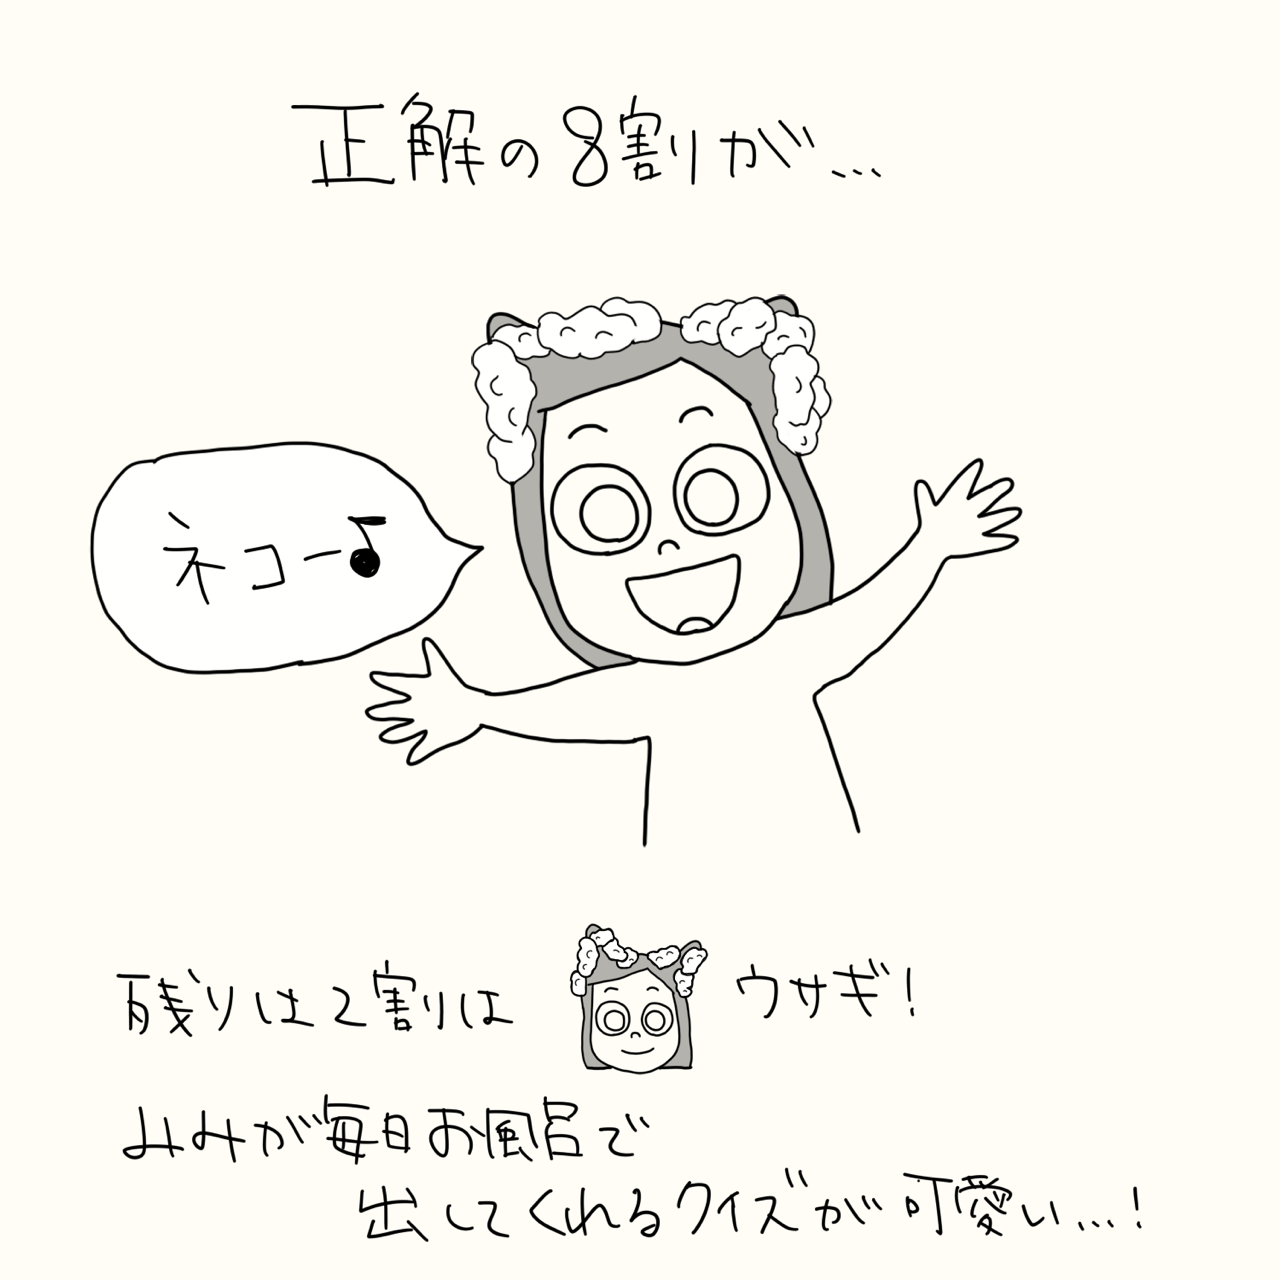 正解の8割が…
ネコー♪
残りは2割は ウサギ!
みみが毎日お風呂で
出してくれるクイズが可愛い…!